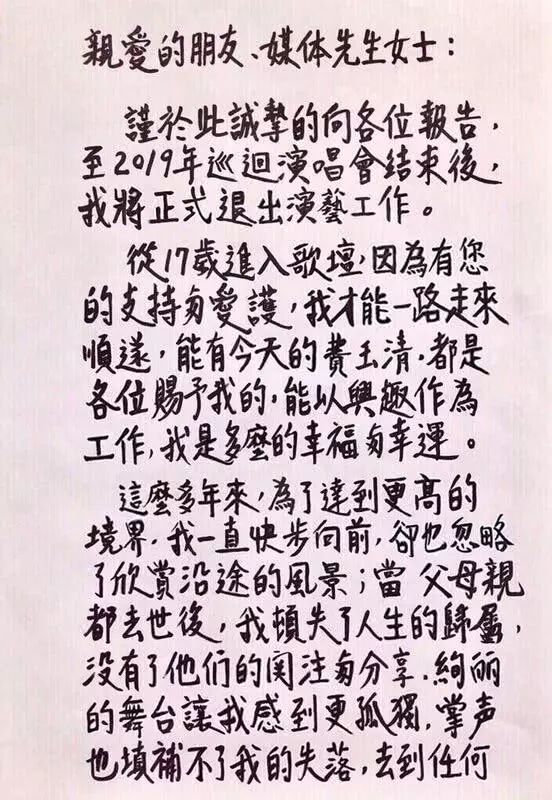 親愛的朋友、媒体先生女士：
謹於此誠摯的向各位報告，
至2019年巡迴演唱會结束後，
我將正式退出演藝工作。
從17歲進入歌壇，因為有您
的支持与愛護，我才能一路走來
順遂，能有今天的費玉清．都是
各位賜予我的，能以興趣作為
工作，我是多麼的幸福与幸運。
這麼多年來，為了達到更高的
境界．我一直快步向前，卻也忽略
了欣賞沿途的風景；當父母親
都去世後，我頓失了人生的歸屬，
没有了他们的関注与分享．絢丽
的舞台讓我感到更孤獨．掌声
也填補不了我的失落，去到任何